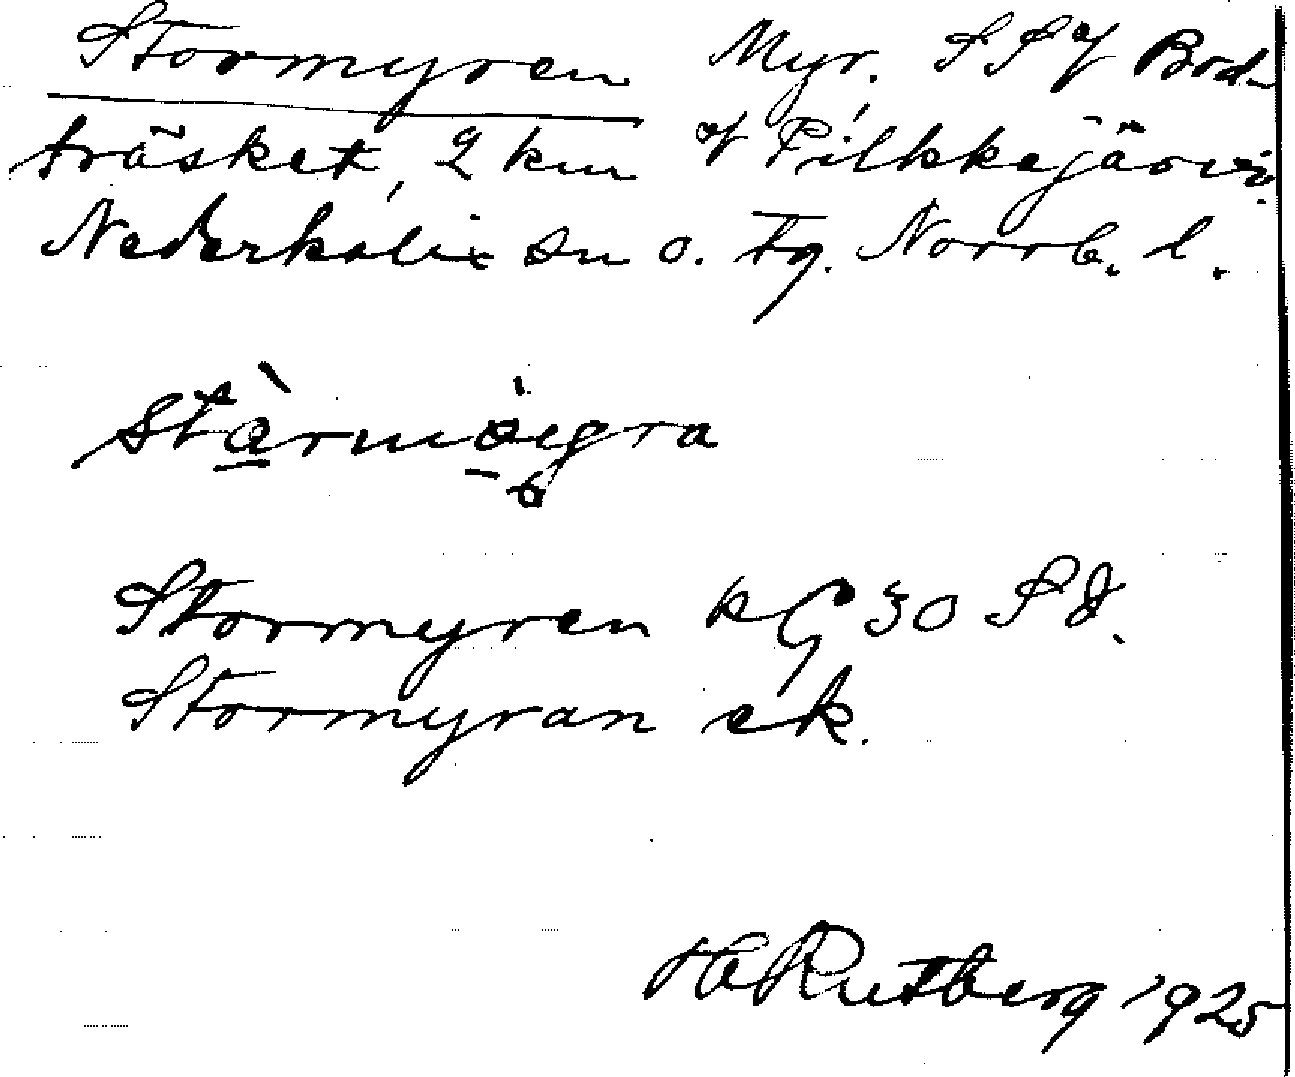 Stormyren Myr. S S of Bod-
träsket, 2 km of Pilkkejärvi.
Nederkalix sn o. tg. Norrb. l.
Stormyren kG 30 S d.
Stormyran ek.
HARutberg 1925